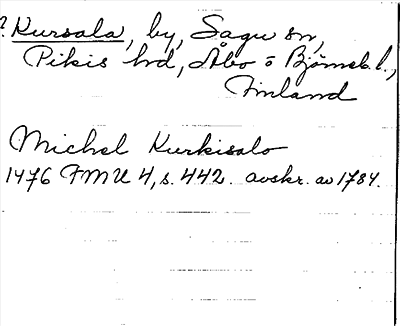 ? Kursala, by, Sagu sn,
Pikis hd, Åbo o Björneb. l.,
Finland
Michel Kurkisalo
1476 FMU 4, s. 442. avskr. av 1784.